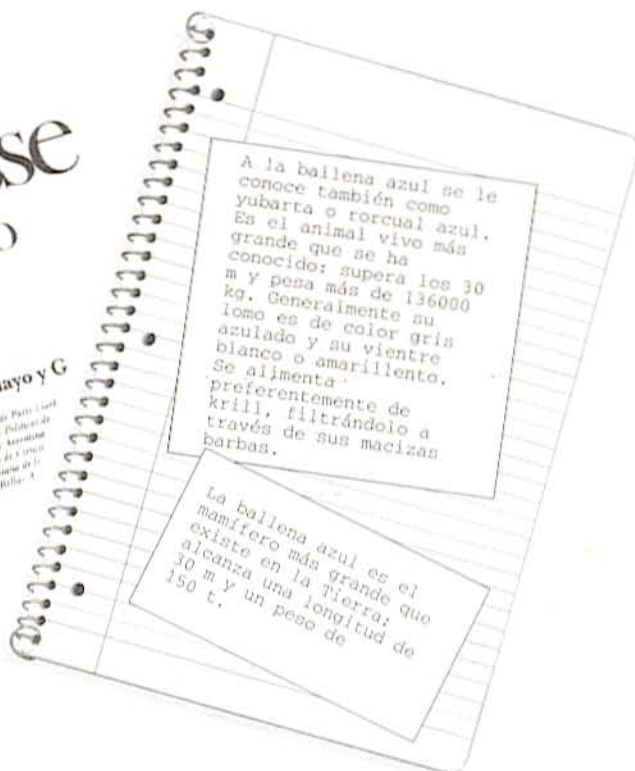 se
o
ayo y G
A la ballena azul se le
conoce también como
yubarta o rorcual azul.
Es el animal vivo más
grande que se ha
conocido: supera los 30
m y pesa más de 136000
kg. Generalmente su
lomo es de color gris
azulado y su vientre
blanco o amarillento.
Se alimenta
preferentemente de
krill, filtrándolo a
través de sus macizas
barbas.
La ballena azul es el
mamífero más grande que
existe en la Tierra;
alcanza una longitud de
30 m y un peso de
150 t.